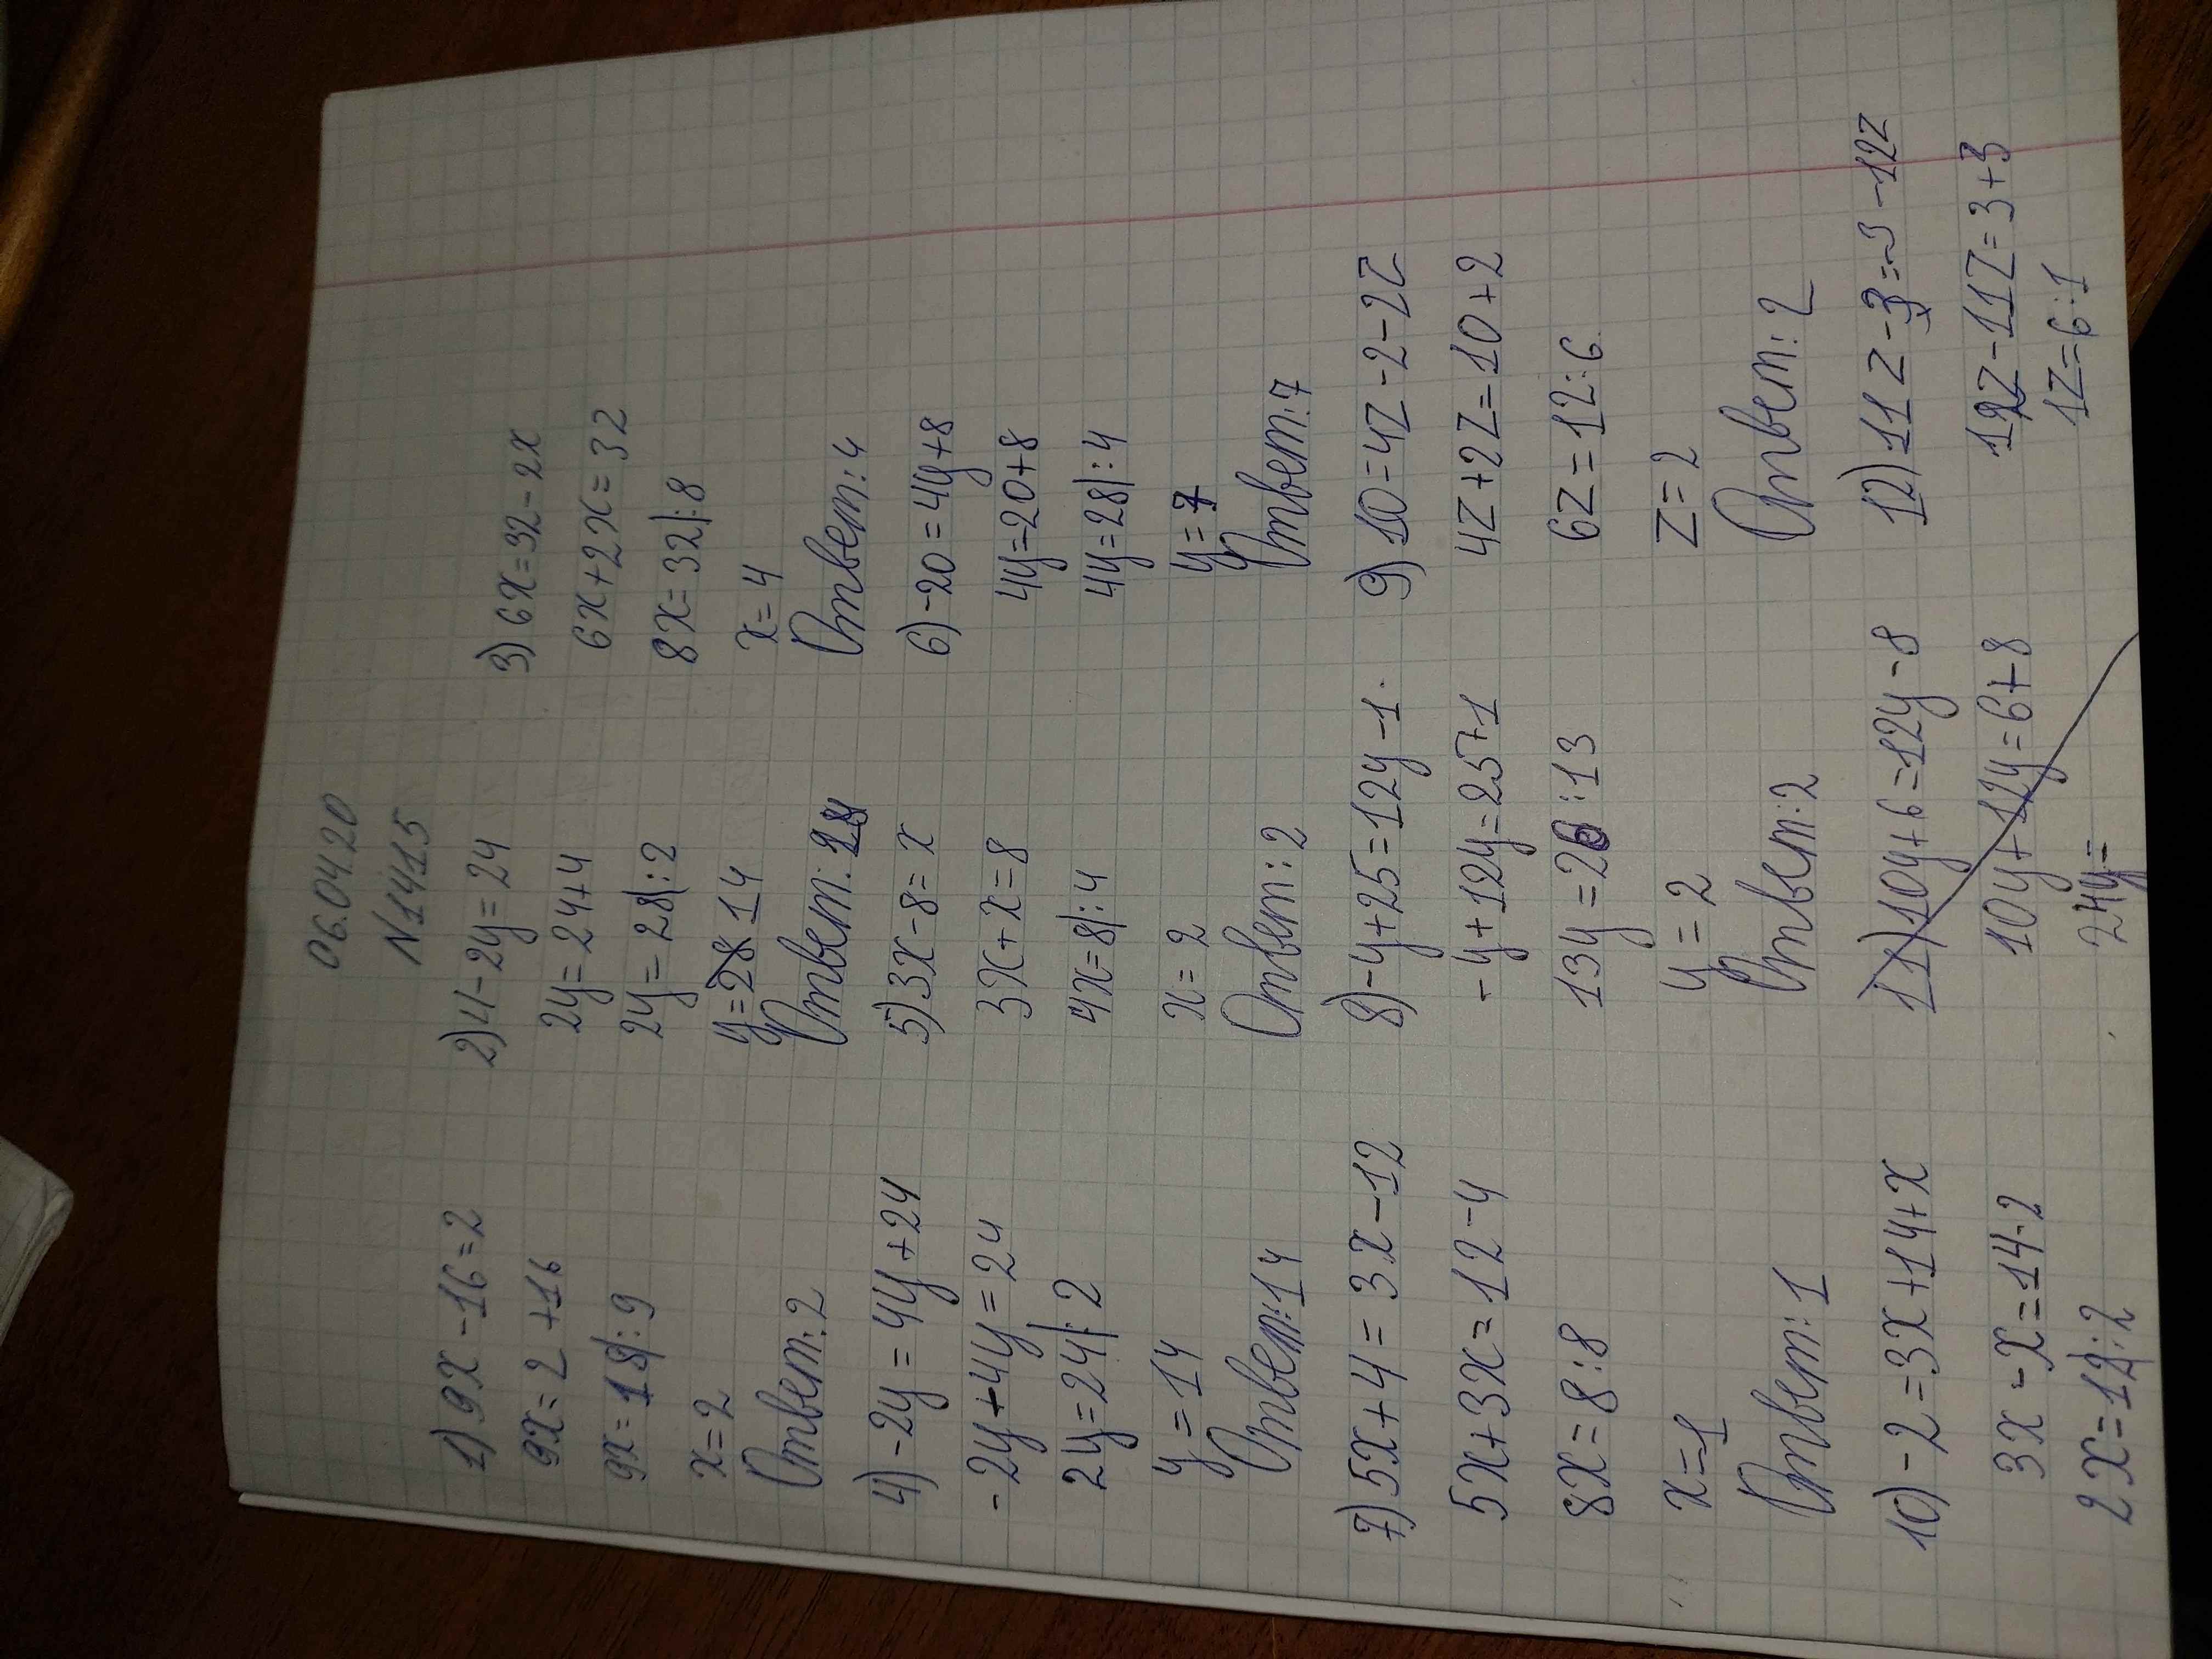 06.04.20
N1415
1) 9x-16=2
9x=2+16
9x=18|:9
x=2
Ответ:2
2) 4-2y=24
2y=24+4
2y=28|:2
y=28 14
Ответ:
3) 6x=32-2x
6x+2x=32
8x=32|:8
x=4
Ответ:4
4) -2y=4y+24
-2y+4y=24
2y=24|:2
y=14
Ответ:14
5) 3x-8=x
3x+x=8
4x=8|:4
x=2
Ответ:2
6) -20=4y+8
4y=20+8
4y=28|:4
y=7
Ответ:7
7) 5x+4=3x-12
5x+3x=12-4
8x=8:8
x=1
Ответ:1
8) -y+25=12y-1
-y+12y=25+1
13y=26:13
y=2
Ответ:2
9) 10=4z-2-2z
4z+2z=10+2
6z=12:6
z=2
Ответ:2
10) -2=3x+14+x
3x-x=14-2
2x=12|:2
11) 10y+6=12y-8
10y+12y=6+8
24y=
12) 11z-3=-3-12z
12z-11z=3+3
1z=6:1